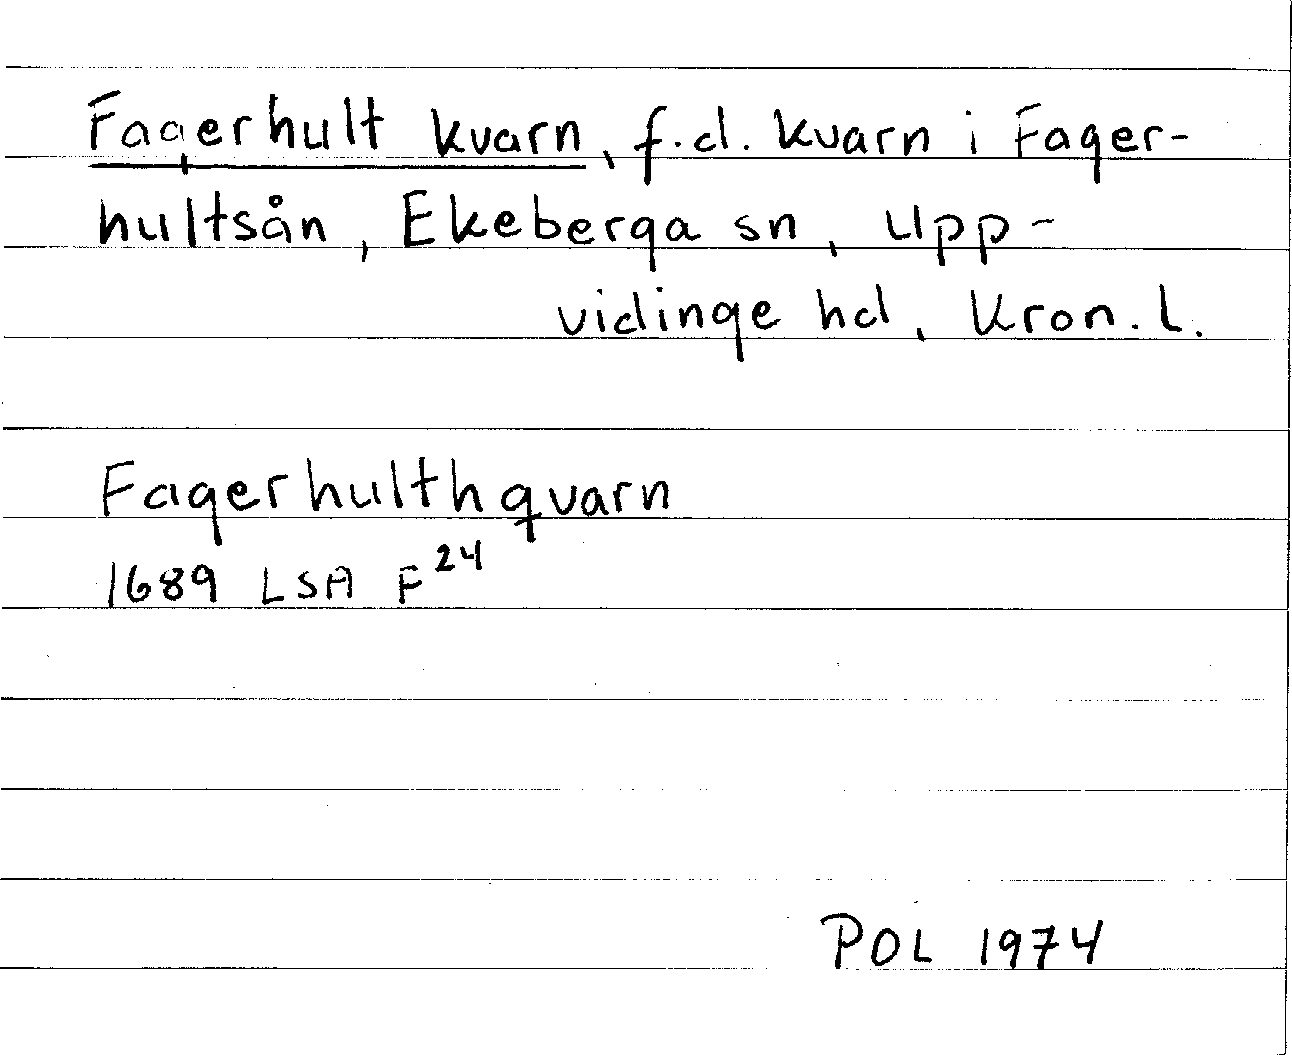 Fagerhult kvarn, f.d. kvarn i Fager-
hultsån, Ekeberga sn, Upp-
vidinge hd, Kron. l.
Fagerhulthqvarn
1689 LSA F 24
POL 1974